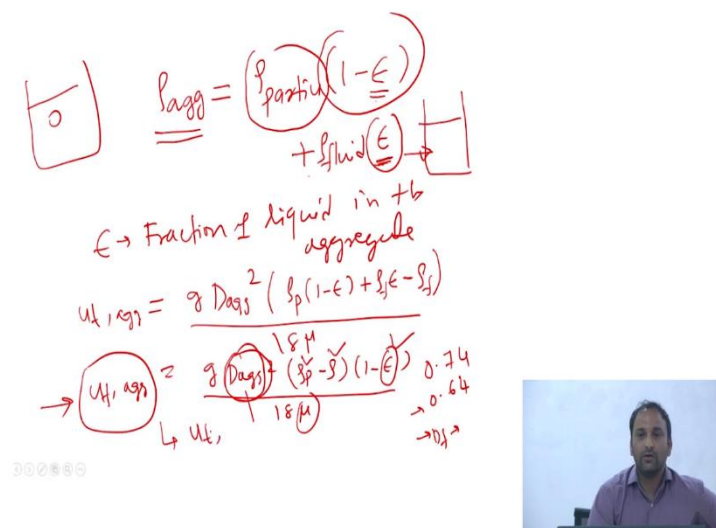 ρagg = (ρparticle (1-ϵ)
+ ρfluid ϵ →
ϵ → Fraction of liquid in the
aggregate
ut, agg = g Dagg² (ρp(1-ϵ) + ρfϵ - ρf)
18 μ
→ ut, agg = g Dagg² (ρp - ρ) (1-ϵ)
18 μ
0.74
→ 0.64
→ Df →
↳ ut,